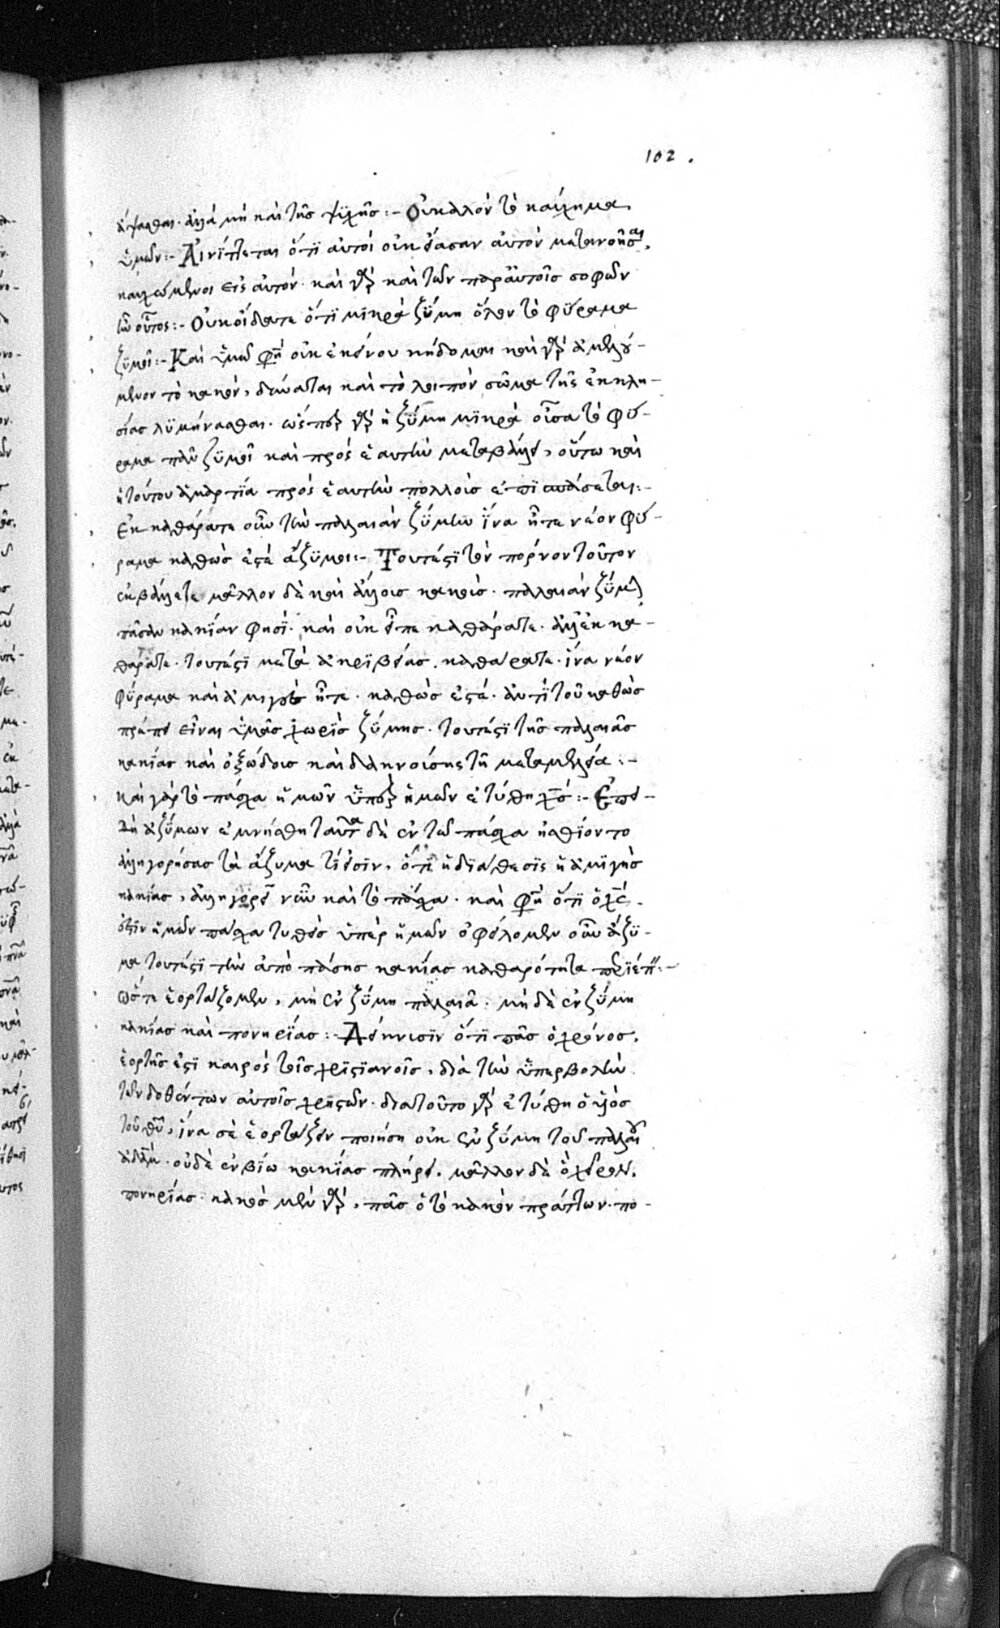 102.
ἅψασθαι. ἀλλὰ μὴ καὶ τῆς ψυχῆς :- Οὐ καλὸν τὸ καύχημα
ὑμῶν :- Αἰνίττεται ὅτι αὐτοὶ οὐκ εἴασαν αὐτὸν μετανοῆσαι,
καυχώμενοι εἰς αὐτόν. καὶ γὰρ καὶ τῶν παρ' αὐτοῖς σοφῶν
ἦν οὗτος :- Οὐκ οἴδατε ὅτι μικρὰ ζύμη ὅλον τὸ φύραμα
ζυμοῖ :- Καὶ ὑμῶν φησὶ οὐκ ἐκείνου κήδομαι καὶ γὰρ ἀμελού-
μενον τὸ κακόν, δύναται καὶ τὸ λοιπὸν σῶμα τῆς ἐκκλη-
σίας λυμήνασθαι. ὥσπερ γὰρ ἡ ζύμη μικρὰ οὖσα τὸ φύ-
ραμα πᾶν ζυμοῖ καὶ πρὸς ἑαυτὴν μεταβάλλει, οὕτω καὶ
ἡ τούτου ἁμαρτία πρὸς ἑαυτὴν πολλοὺς ἐπισπάσεται :-
Ἐκκαθάρατε οὖν τὴν παλαιὰν ζύμην ἵνα ἦτε νέον φύ-
ραμα καθώς ἐστε ἄζυμοι :- Τουτέστι τὸν πόρνον τοῦτον
ἐκβάλλετε μᾶλλον δὲ καὶ ἄλλους κακούς. παλαιὰν ζύμην
πᾶσαν κακίαν φησί. καὶ οὐκ εἶπε καθάρατε. ἀλλ' ἐκκα-
θάρατε. τουτέστι μετὰ ἀκριβείας. καθάρατε. ἵνα νέον
φύραμα καὶ ἀμιγὲς ἦτε. καθώς ἐστε. ἀντὶ τοῦ καθὼς
πρέπει εἶναι ὑμᾶς χωρὶς ζύμης. τουτέστι τῆς παλαιᾶς
κακίας καὶ ὀξώδους καὶ δακνούσης τῇ μεταμελείᾳ :-
Καὶ γὰρ τὸ πάσχα ἡμῶν ὑπὲρ ἡμῶν ἐτύθη χς :- Ἐπει-
δὴ ἀζύμων ἐμνήσθη ταῦτα δὲ ἐν τῷ πάσχα ἠσθίοντο
ἀλληγορήσας τὰ ἄζυμα τί εἰσιν, ὅτι ἡ διάθεσις ἡ ἀμιγὴς
κακίας, ἀλληγορεῖ νῦν καὶ τὸ πάσχα. καὶ φησὶ ὅτι ὁ χς
ἐστιν ἡμῶν πάσχα τυθεὶς ὑπὲρ ἡμῶν ὀφείλομεν οὖν ἄζυ-
μα τουτέστι τὴν ἀπὸ πάσης κακίας καθαρότητα
ὥστε ἑορτάζομεν, μὴ ἐν ζύμῃ παλαιᾷ. μὴ δὲ ἐν ζύμῃ
κακίας καὶ πονηρίας :- Δείκνυσιν ὅτι πᾶς ὁ χρόνος,
ἑορτῆς ἐστι καιρὸς τοῖς χριστιανοῖς, διὰ τὴν ὑπερβολὴν
τῶν δοθέντων αὐτοῖς χρηστῶν. διὰ τοῦτο γὰρ ἐτύθη ὁ υἱὸς
τοῦ θυ, ἵνα σὲ ἑορτάζειν ποιήσῃ οὐκ ἐν ζύμῃ τοῦ παλαιοῦ
ἀδάμ. οὐδὲ ἐν βίῳ κακίας πλήρει. μᾶλλον δὲ ὃ χεῖρον,
πονηρίας. κακὸς μὲν γὰρ, πᾶς ὁ τὸ κακὸν πράττων. πο-